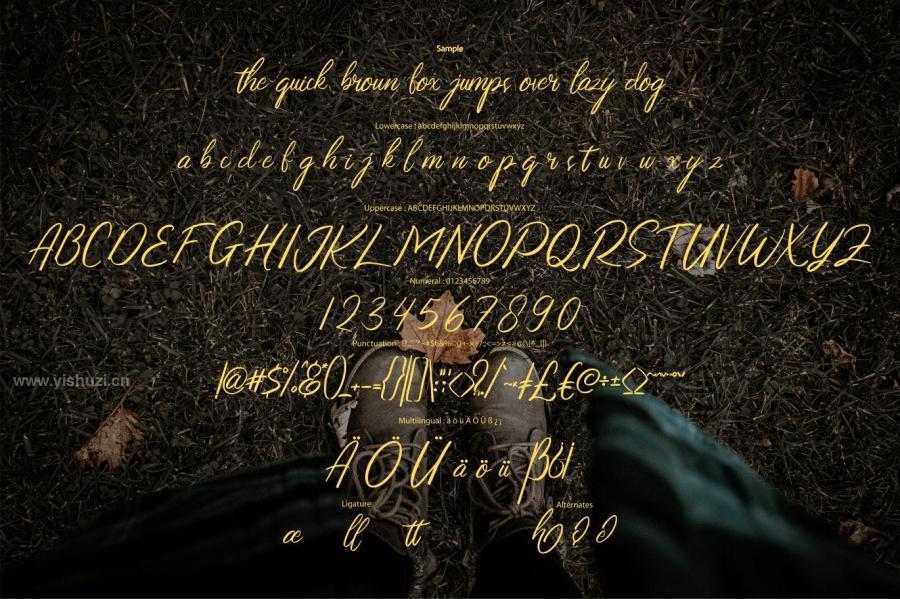 Sample
the quick broun fox jumps over lazy dog
Lowercase : abcdefghijklmnopqrstuvwxyz
a b c d e f g h i j k l m n o p q r s t u v w x y z
Uppercase : ABCDEFGHIJKLMNOPQRSTUVWXYZ
ABCDEFGHIJKLMNOPQRSTUVWXYZ
Numeral : 0123456789
1234567890
Punctuation :
www.yishuzi.cn
Multilingual : ä ö ü Ä Ö Ü ß ¿ ¡
Ä Ö Ü ä ö ü ß¿¡
Ligature Alternates
æ ll tt h